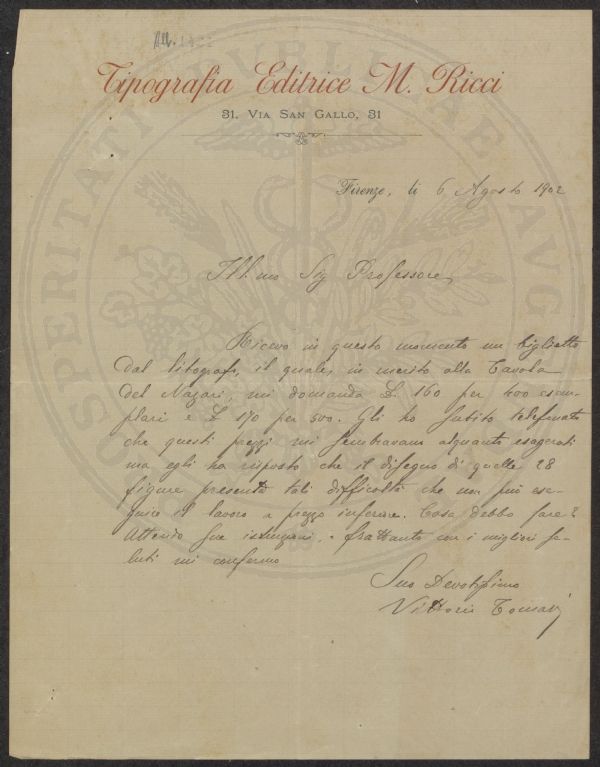 All.
Tipografia Editrice M. Ricci
31, VIA SAN GALLO, 31
Firenze, li 6 Agosto 1902
Ill.mo Sig Professore,
Ricevo in questo momento un biglietto
dal litografo, il quale, in merito alla Tavola
del Nazari, mi domanda £. 160 per 400 esem-
plari e £ 170 per 500. Gli ho subito telefonato
che questi prezzi mi sembravano alquanto esagerati
ma egli ha risposto che il disegno di quelle 28
figure presenta tali difficoltà che non può ese-
guire il lavoro a prezzo inferiore. Cosa debbo fare?
Attendo sue istruzioni, e frattanto con i migliori sa-
luti mi confermo
Suo Devotissimo
Vittorio
PROSPERITATI PUBLICAE AUG